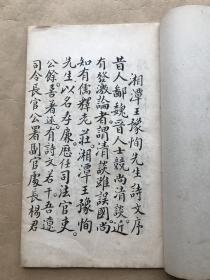 湘潭王豫恂先生詩文序
昔人鄙魏晉人士競尚清談近
有發激論者謂清談雖誤國尚
如有儒釋老莊湘潭王豫恂
先生以名孝廉歷任司法官吏
公餘善著述有詩文若干吾還
司令長官公署副官處長楊君